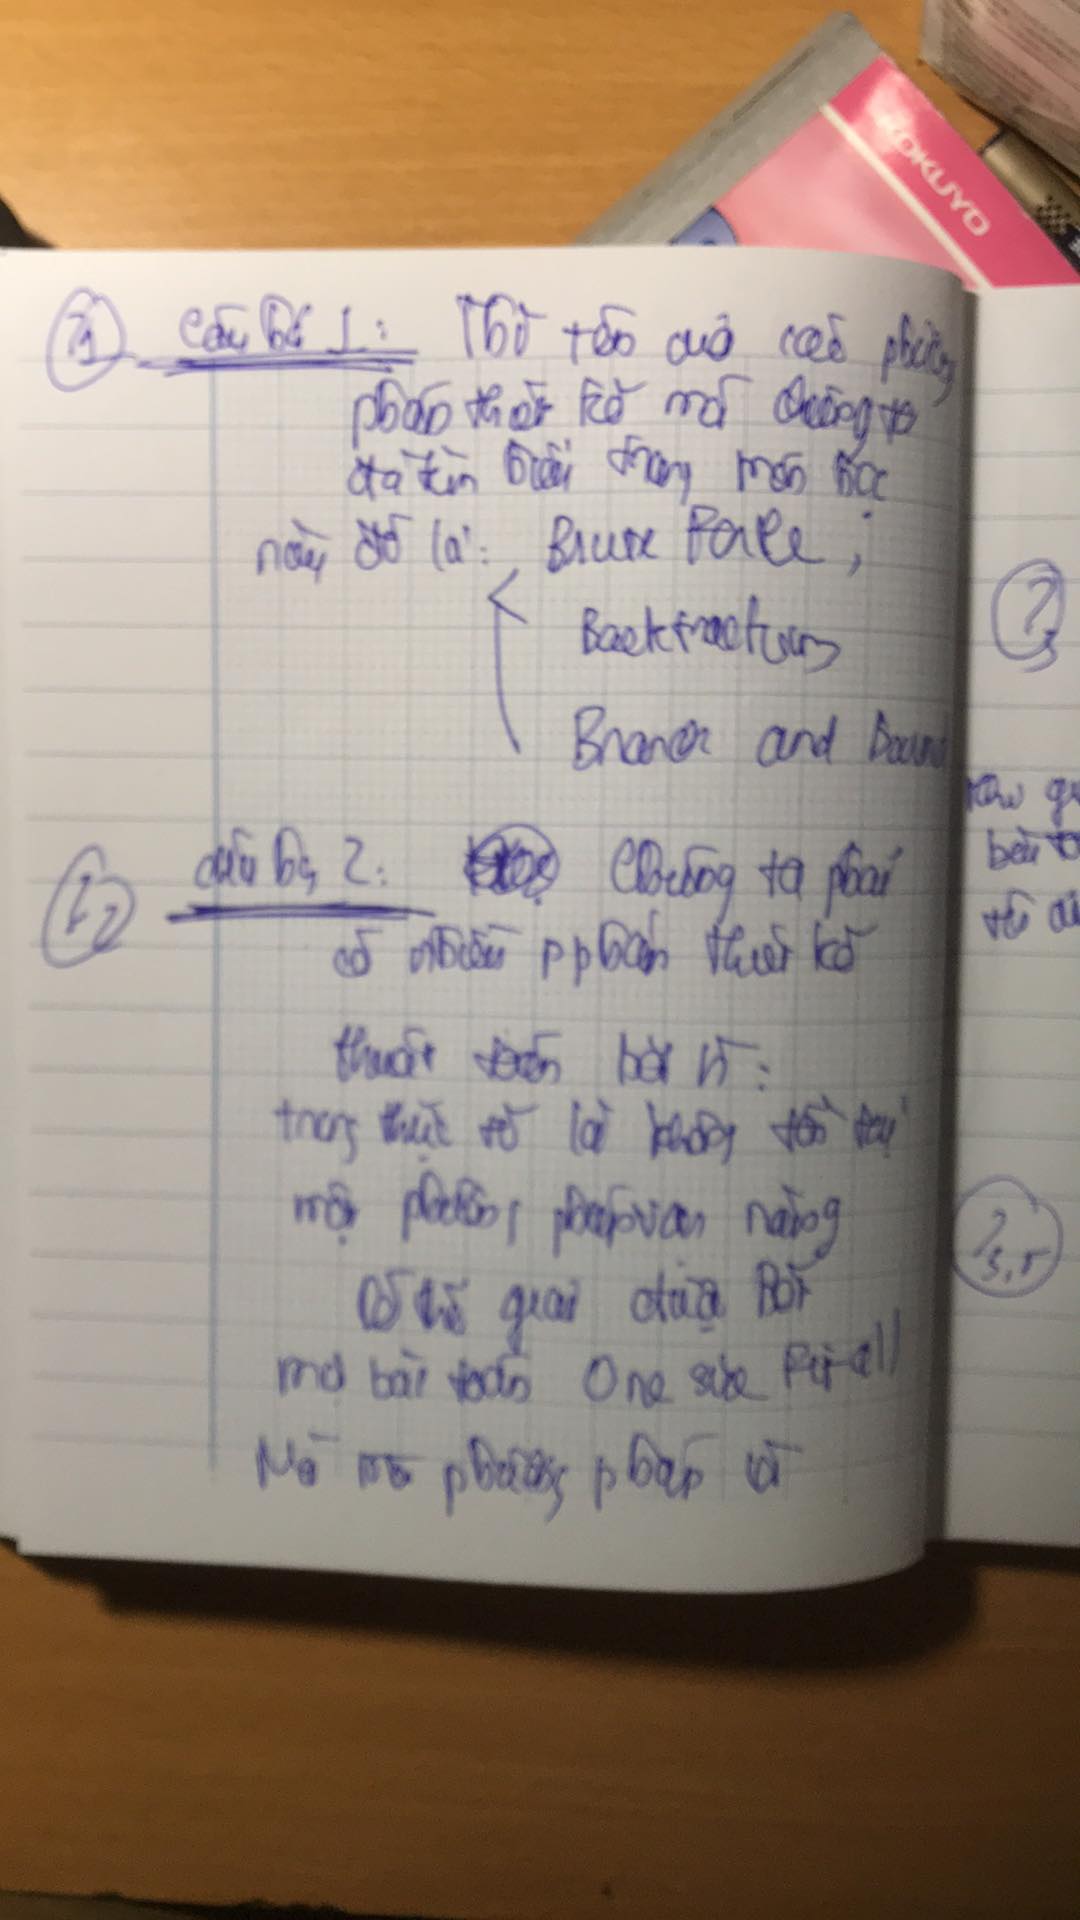 KOKUYO
?1 Câu hỏi 1: Thì tên của các phương
pháp thiết kế mà chúng ta
đã tìm hiểu trong môn học
này đó là: Brute Force,
Backtracking
Branch and Bound
?2 Câu hỏi 2: Chúng ta phải
có nhiều p pháp thiết kế
thuật toán bởi vì:
trong thực tế là không tồn tại
một phương pháp vạn năng
Có thể giải được
mọi bài toán One size Fit all
phương pháp
?3
?3,5